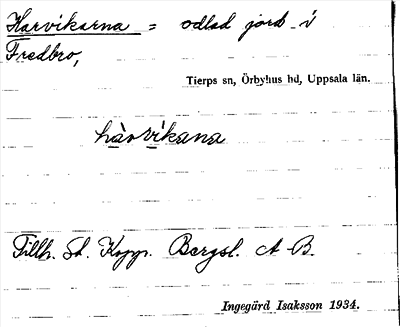 Harvikarna = odlad jord i
Fredbro,
Tierps sn, Örbyhus hd, Uppsala län.
hàrvikana
Tillh. St. Kopp. Bergsl. A-B.
Ingegärd Isaksson 1934.